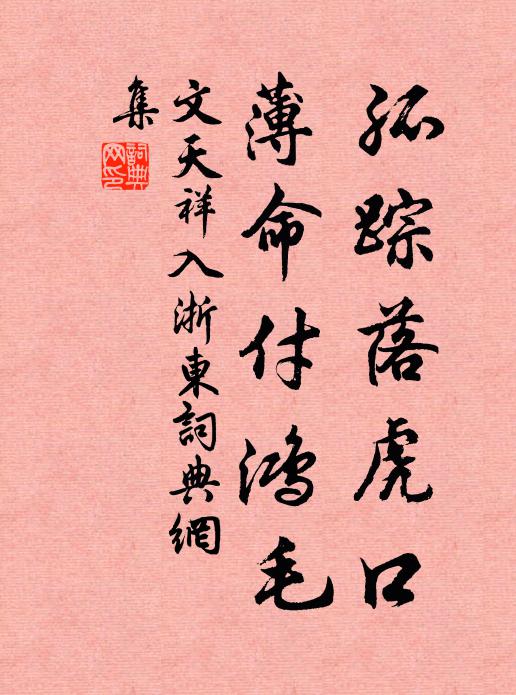 孤踪落虎口
薄命付鴻毛
文天祥入浙東詞典網
集
詞典
网印